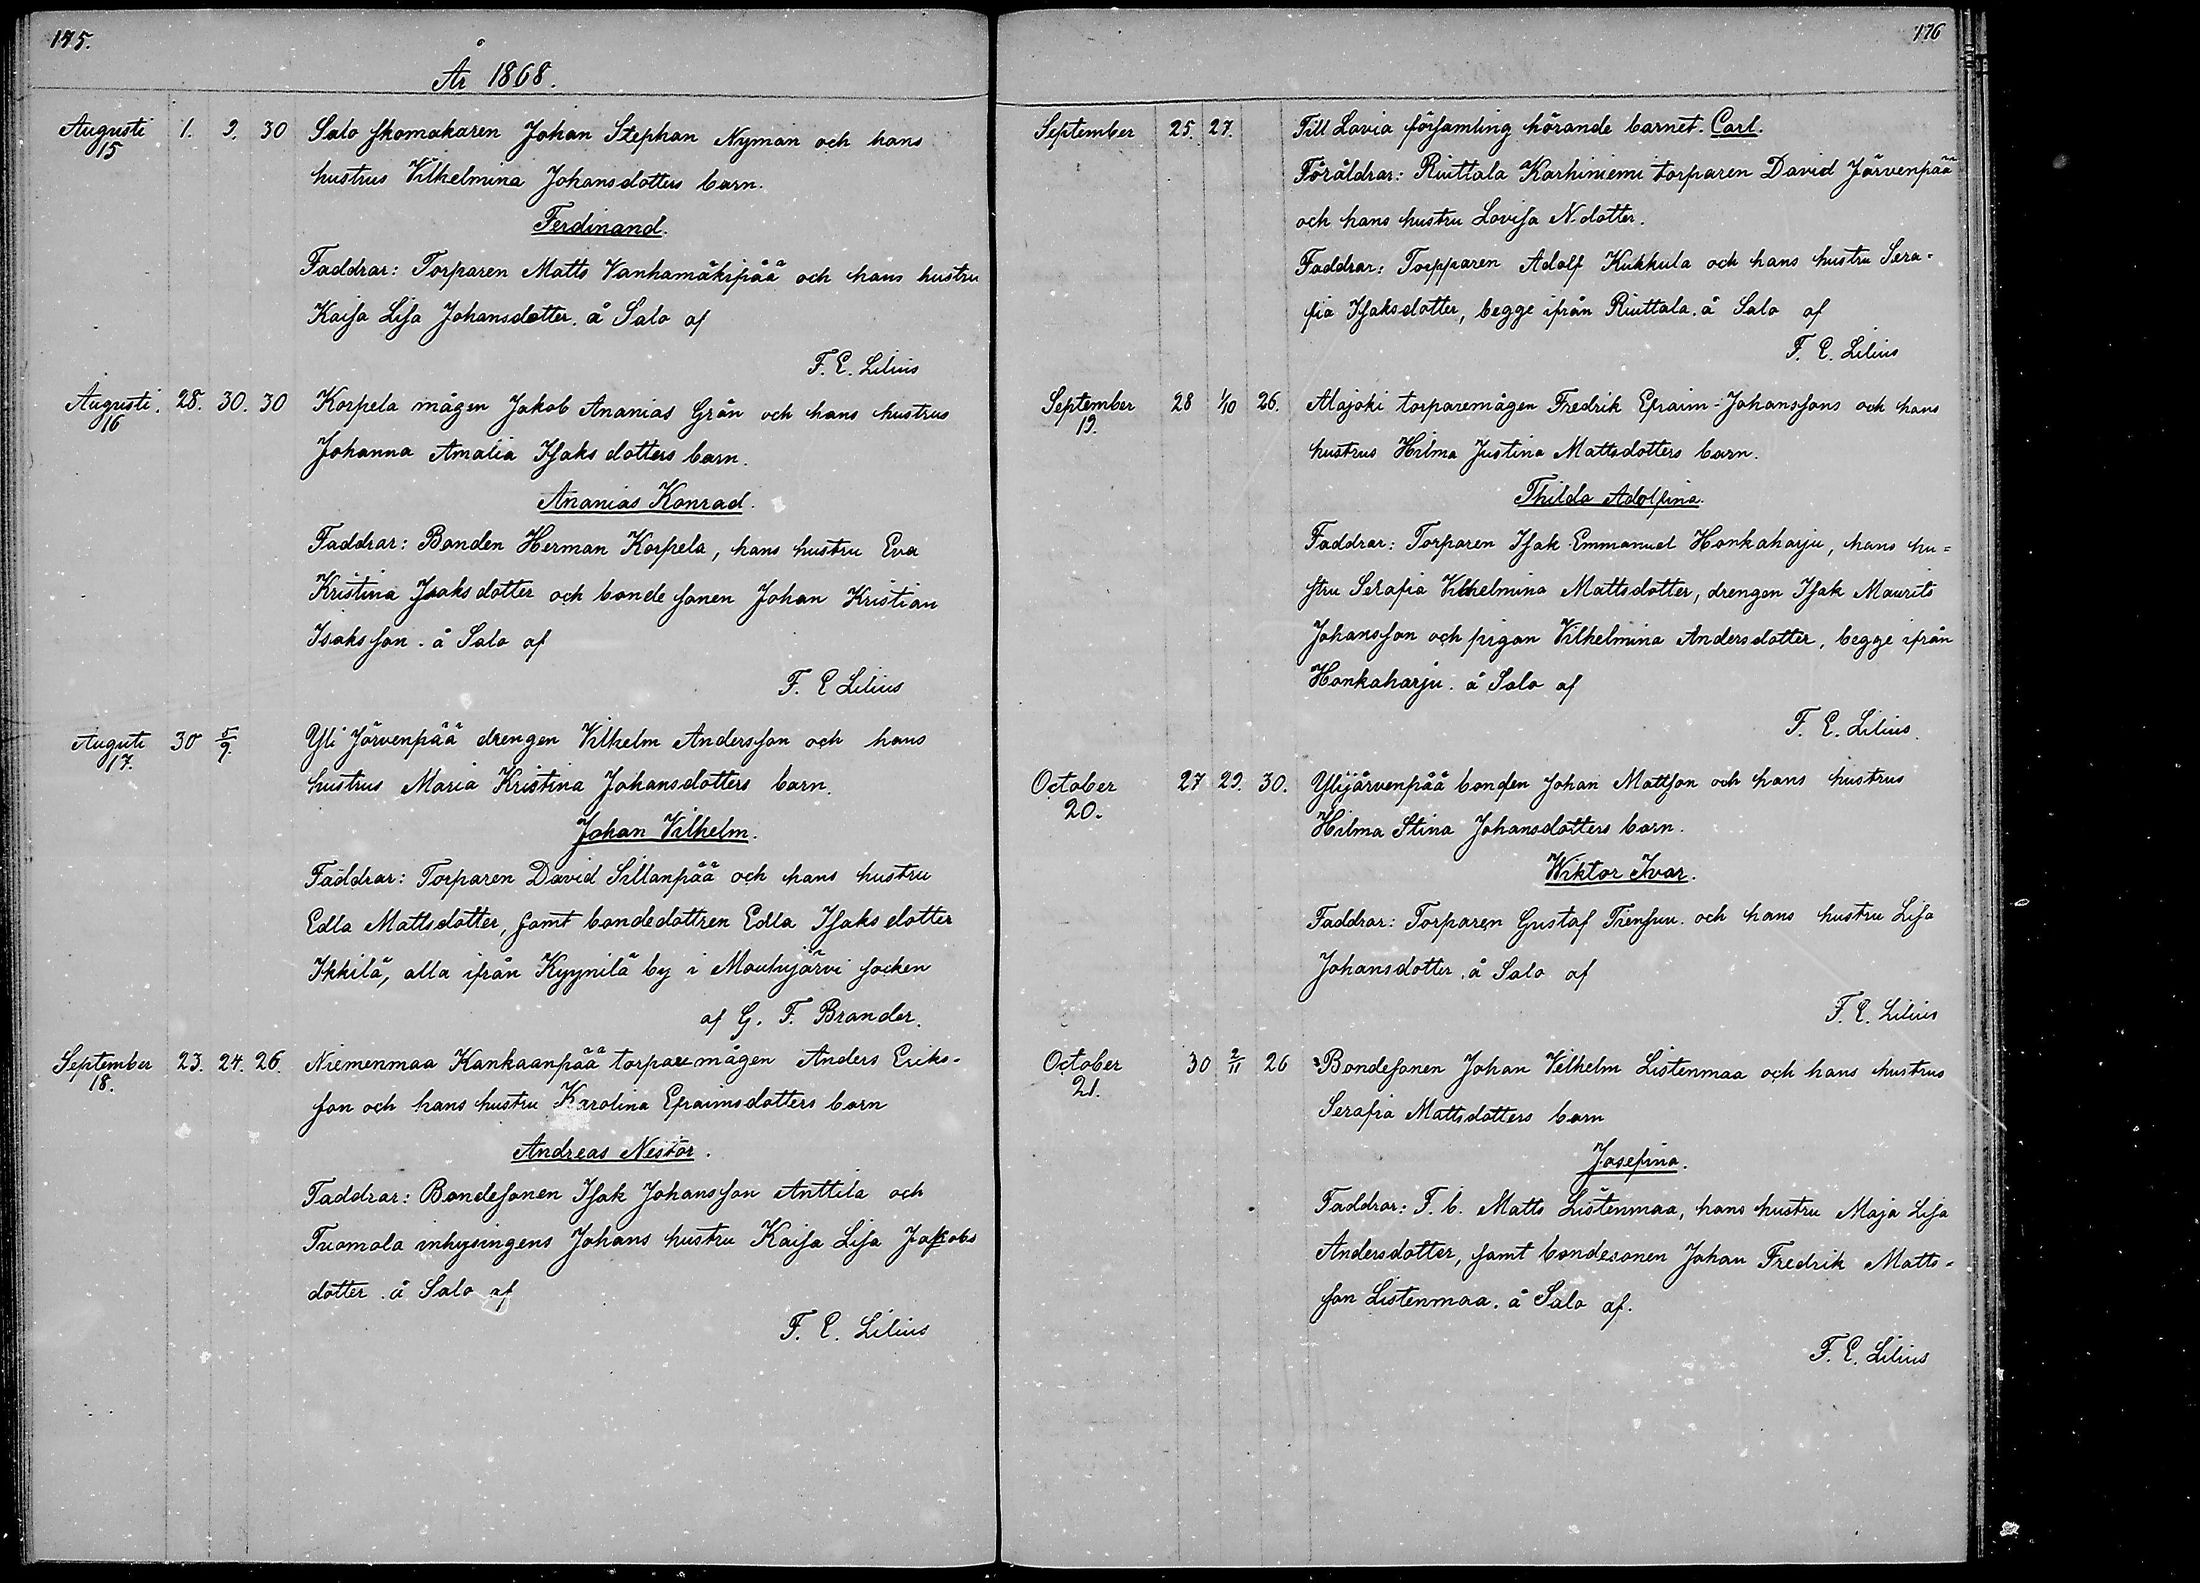 175.
År 1868.
Augusti 1. 9. 30 Salo skomakaren Johan Stephan Nyman och hans
15
hustrus Vilhelmina Johansdotters barn.
Ferdinand.
Faddrar: Torparen Matts Vanhamäkipää och hans hustru
Kaisa Lisa Johansdotter. å Salo af
F. E. Lilius
Augusti. 28. 30. 30 Korpela mågen Jakob Ananias Grån och hans hustrus
16
Johanna Amalia Isaksdotters barn.
Ananias Konrad.
Faddrar: Bonden Herman Korpela, hans hustru Eva
Kristina Isaksdotter och bonde sonen Johan Kristian
Isaksson. å Salo af
F. E Lilius
Auguti 30 5/9. Yli Järvenpää drengen Vilhelm Andersson och hans
17.
hustrus Maria Kristina Johansdotters barn.
Johan Vilhelm.
Faddrar: Torparen David Sillanpää och hans hustru
Edla Mattsdotter, samt bondedottren Edla Isaksdotter
Ikkilä, alla ifrån Kyynilä by i Mouhijärvi socken
af G. F. Brander.
September 23. 24. 26. Niemenmaa Kankaanpää torparemågen Anders Eriks-
18.
son och hans hustru Karolina Efraimsdotters barn
Andreas Nestor.
Faddrar: Bondesonen Isak Johansson Anttila och
Tuomola inhysingens Johans hustru Kaisa Lisa Jakobs
dotter. å Salo af
F. E. Lilius
176
September 25. 27. Till Lavia församling hörande barnet. Carl.
Föräldrar: Riuttala Karhiniemi torparen David Järvenpää
och hans hustru Lovisa N. dotter.
Faddrar: Torpparen Adolf Kukkula och hans hustru Sera-
fia Isaksdotter, begge ifrån Riuttala. å Salo af
F. E. Lilius
September 28 1/10 26. Alajoki torparemågen Fredrik Efraim Johanssons och hans
19.
hustrus Hilma Justina Mattsdotters barn.
Thilda Adolfina.
Faddrar: Torparen Isak Emmanuel Honkaharju, hans hu=
stru Serafia Vilhelmina Mattsdotter, drengen Isak Maurits
Johansson och pigan Vilhelmina Andersdotter, begge ifrån
Honkaharju. å Salo af
F. E. Lilius.
October 27 29. 30. Ylijärvenpää bonden Johan Mattson och hans hustrus
20.
Hilma Stina Johansdotters barn.
Wiktor Ivar.
Faddrar: Torparen Gustaf Tiensuu och hans hustru Lisa
Johansdotter. å Salo af
F. E. Lilius
October 30 2/11 26 Bondesonen Johan Vilhelm Listenmaa och hans hustrus
21.
Serafia Mattsdotters barn
Josefina.
Faddrar: F. b. Matts Listenmaa, hans hustru Maja Lisa
Andersdotter, samt bondesonen Johan Fredrik Matts=
son Listenmaa. å Salo af.
F. E. Lilius